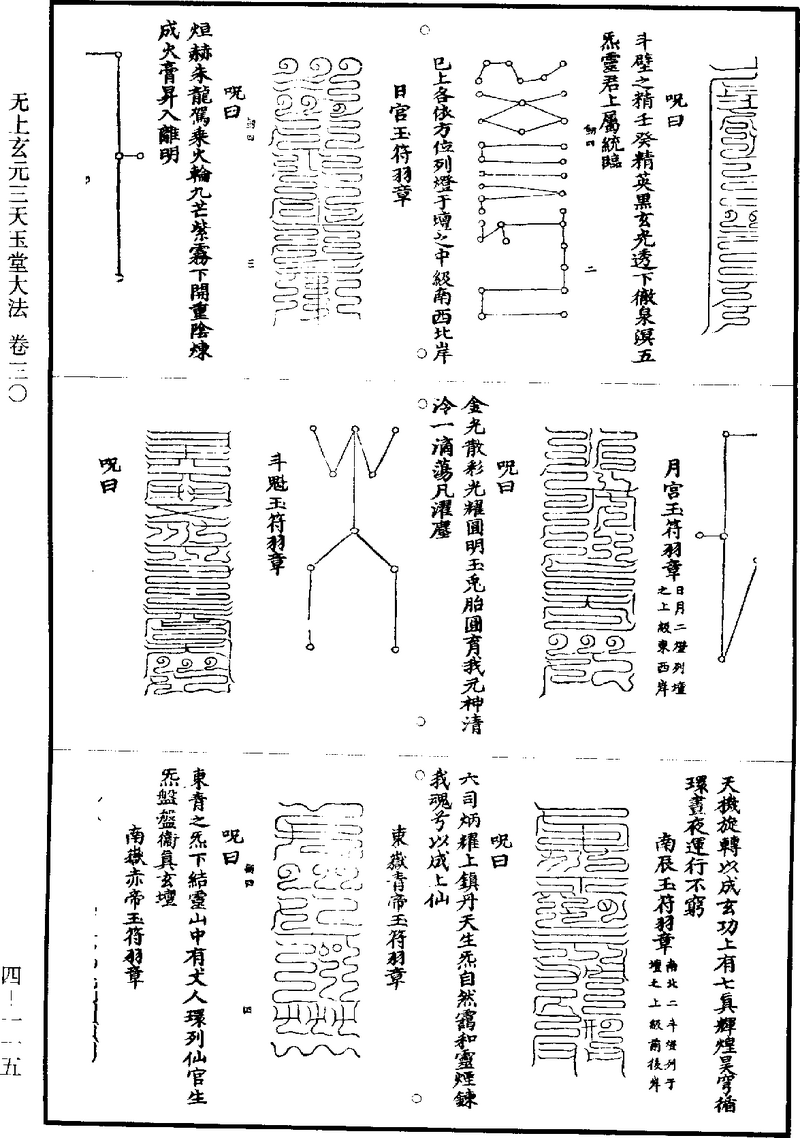 呪曰
斗壁之精壬癸精英黑玄光透下徹泉溟五
炁靈君上屬統臨
二
巳上各依方位列燈于壇之中級南西北岸
日宮玉符羽章
三
呪曰
烜赫朱龍駕乘火輪九芒紫霧下開重陰煉
成火膏昇入離明
月宮玉符羽章
日月二燈列壇
之上級東西岸
呪曰
金光散彩光耀圓明玉兎胎圓育我元神清
泠一滴蕩凡濯塵
斗魁玉符羽章
呪曰
天機旋轉以成玄功上有七真輝煌昊穹循
環晝夜運行不窮
南辰玉符羽章
南北二斗燈列于
壇之上級前後岸
呪曰
六司炳耀上鎮丹天生炁自然靄和靈煙鍊
我魂兮以成上仙
東嶽青帝玉符羽章
四
呪曰
東青之炁下結靈山中有丈人環列仙官生
炁盤盤衞真玄壇
南嶽赤帝玉符羽章
无上玄元三天玉堂大法 卷三〇
四－一一五